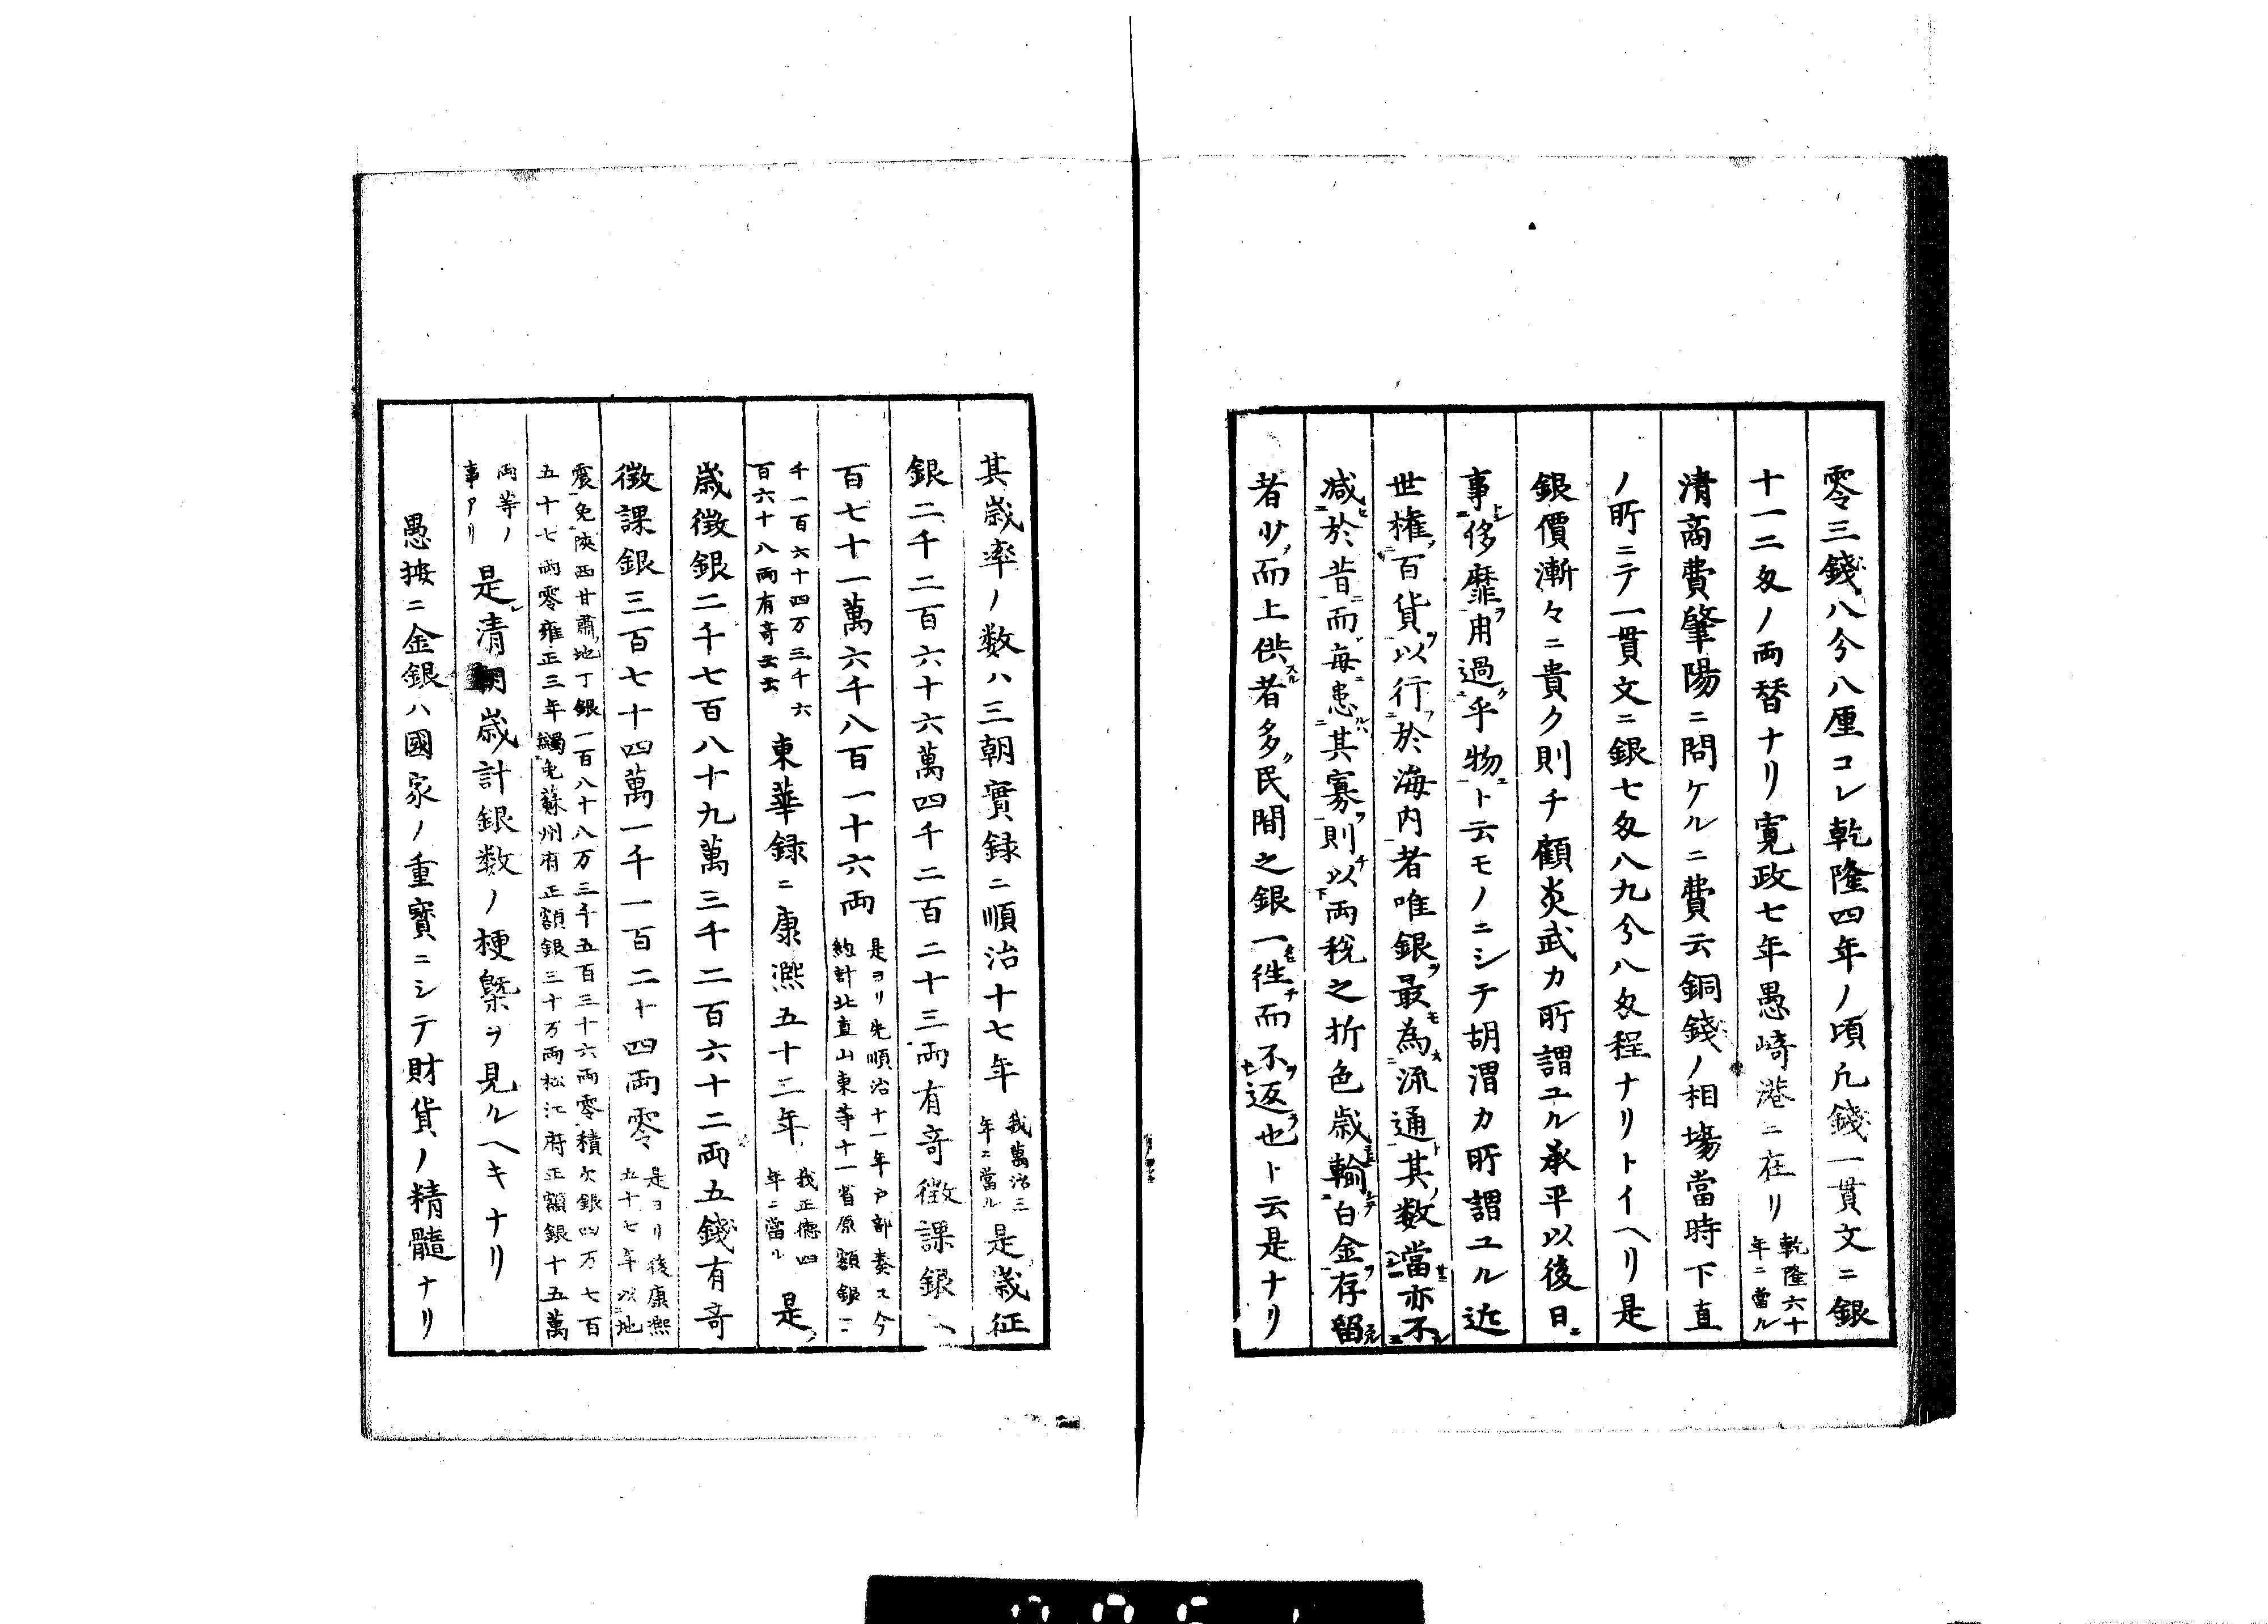 零三錢八分八厘コレ乾隆四年ノ頃凡錢一貫文ニ銀
十一二匁ノ両替ナリ寛政七年愚崎港ニ在リ乾隆六十年ニ當ル
清商費肇陽ニ問ケルニ費云銅錢ノ相場當時下直
ノ所ニテ一貫文ニ銀七匁八九分八匁程ナリトイヘリ是
銀價漸々ニ貴ク則チ顧炎武カ所謂ユル承平以後日
事侈靡用過乎物ト云モノニシテ胡渭カ所謂ユル近
世権百貨以行於海内者唯銀最為流通其数當亦不
減於昔而毎患其寡則以両税之折色歳輸白金存留
者少而上供者多民間之銀一往而不返也ト云是ナリ
其歳率ノ数ハ三朝實録ニ順治十七年我萬治三年ニ當ル是歳征
銀二千二百六十六萬四千二百二十三両有奇徴課銀ハ
百七十一萬六千八百一十六両是ヨリ先順治十一年戸部奏ス今約計北直山東等十一省原額銀三
千一百六十四万三千六百六十八両有奇云云東華録ニ康熙五十二年我正徳四年ニ當ル是
歳徴銀二千七百八十九萬三千二百六十二両五錢有奇
徴課銀三百七十四萬一千一百二十四両零是ヨリ後康熙五十七年以地
震免陝西甘肅地丁銀一百八十八万三千五百三十六両零積欠銀四万七百五十七両零雍正三年蠲免蘇州府正額銀三十万両松江府正額銀十五萬
両等ノ事アリ是清朝歳計銀数ノ梗槩ヲ見ルヘキナリ
愚按ニ金銀ハ國家ノ重寳ニシテ財貨ノ精髓ナリ